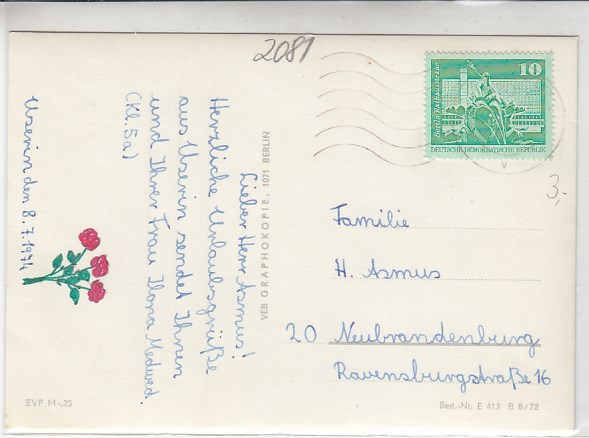 2081
Usenin den 8.7.1974
Lieber Herr Asmus!
Herzliche Urlaubsgrüße
aus Usenin sendet Ihnen
und Ihrer Frau Ilona Medwed.
(Kl. 5a)
VEB GRAPHOKOPIE, 1071 BERLIN
10
Berlin, Rathausstraße
DEUTSCHE DEMOKRATISCHE REPUBLIK
3,-
Familie
H. Asmus
20 Neubrandenburg
Ravensburgstraße 16
EVP M -,25
Best.-Nr. E 413 B 8/72